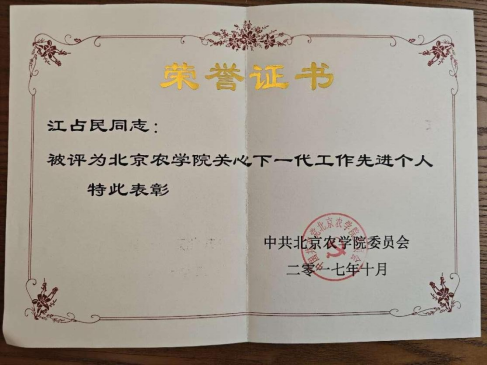 荣誉证书
江占民同志：
被评为北京农学院关心下一代工作先进个人
特此表彰
中共北京农学院委员会
二零一七年十月